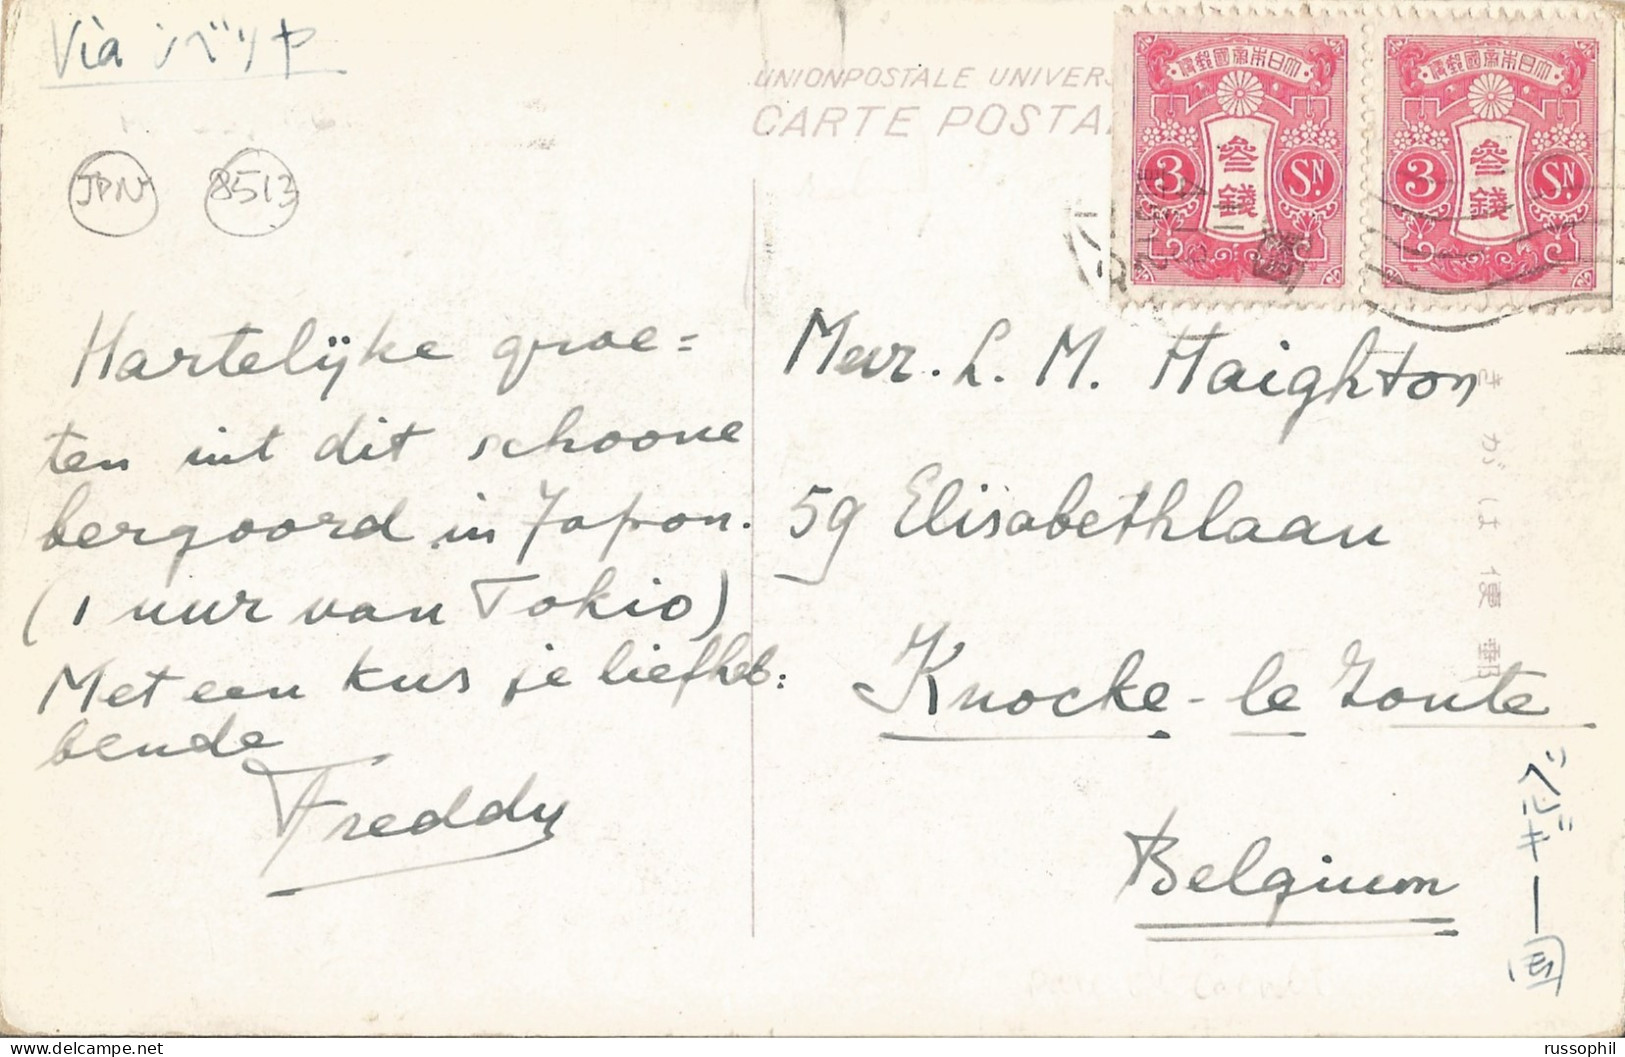 Via シベリヤ
UNIONPOSTALE UNIVERS
CARTE POSTA
大日本帝國郵便
3 参銭 SN.
大日本帝國郵便
3 参銭 SN.
JPN 8513
Hartelijke groe=
ten uit dit schoone
bergoord in Japan.
(1 uur van Tokio)
Met een kus je liefheb:
bende
Freddy
Mevr. L. M. Haighton
59 Elisabethlaan
Knocke-le Zoute
Belgium
ベルギー国
きがは便郵
russophil
delcampe.net